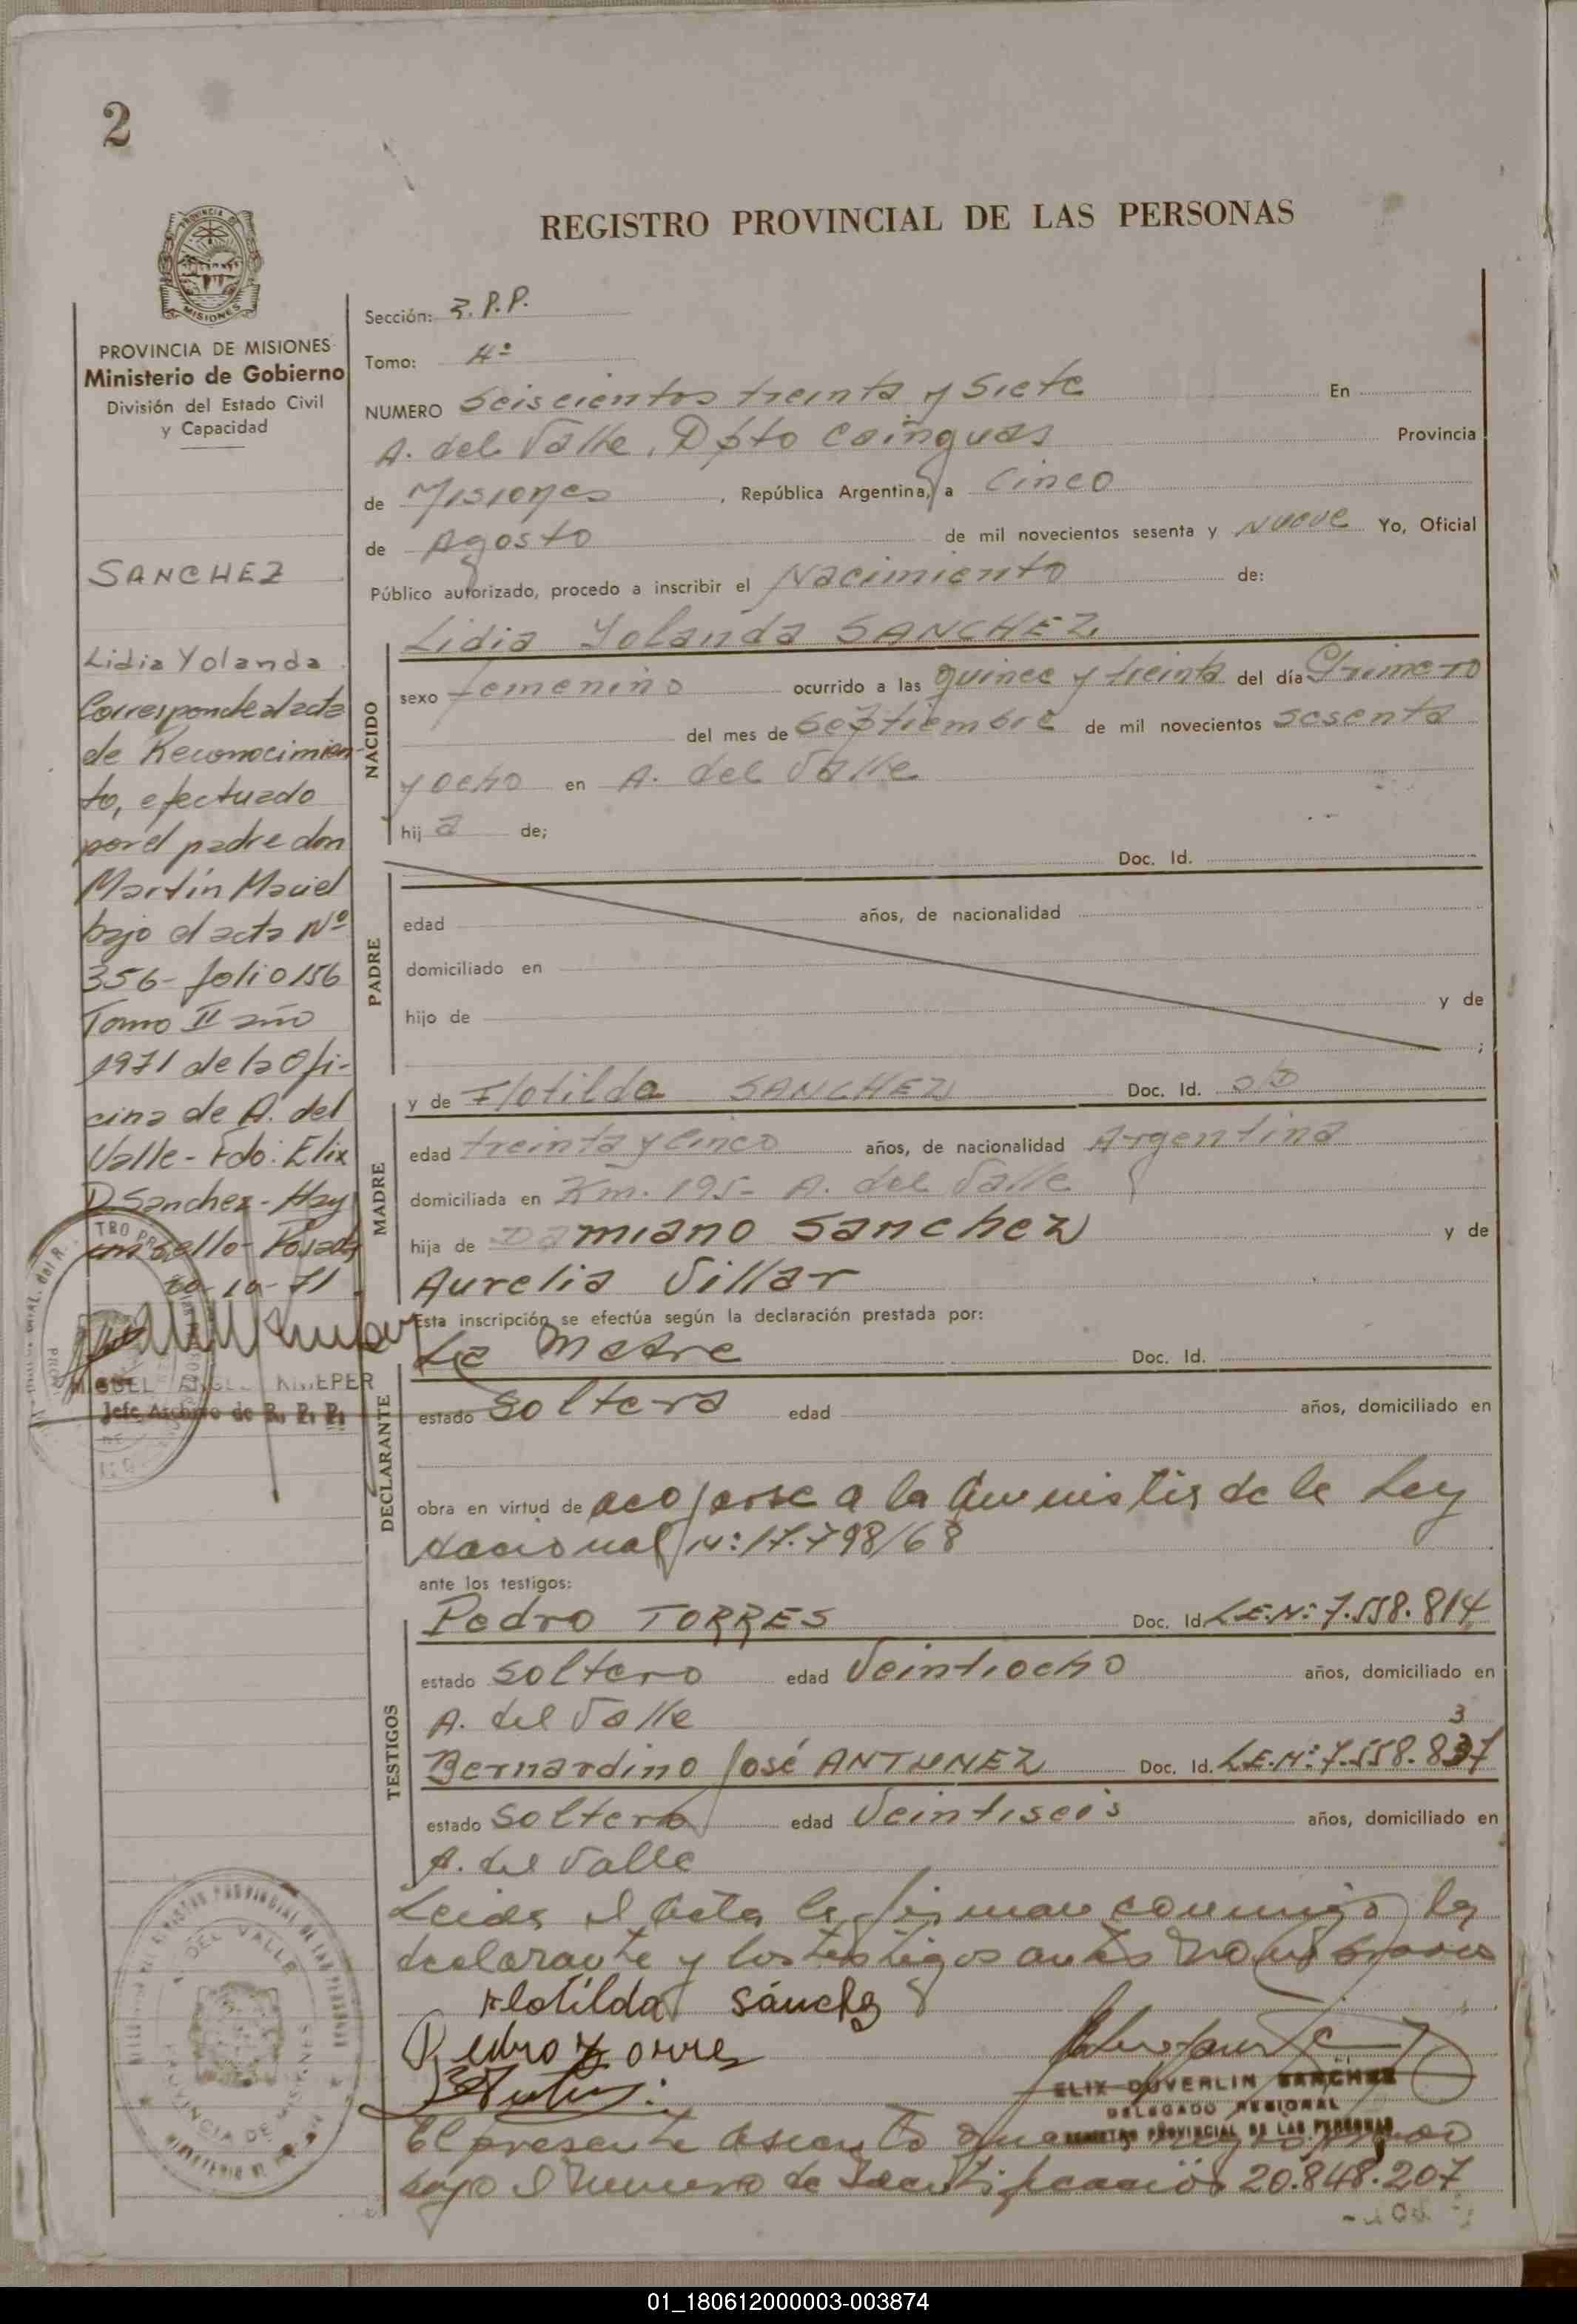 2
REGISTRO PROVINCIAL DE LAS PERSONAS
PROVINCIA DE MISIONES
Ministerio de Gobierno
División del Estado Civil
y Capacidad
SANCHEZ
Lidia Yolanda
Corresponde al acta
de Reconocimien-
to, efectuado
por el padre don
Martín Maciel
bajo el acta Nº
356- folio 156
Tomo II año
1971 de la Ofi-
cina de A. del
Valle - Fdo: Elix
D. Sanchez - Hay
un sello - Posadas
20-10-71
MIGUEL ANGEL KNIEPER
Jefe Archivo de R. P. P.
Sección: R.P.P.
Tomo: 4º
NUMERO Seiscientos treinta y Siete En
A. del Valle, Dpto Cainguas Provincia
de Misiones, República Argentina, a Cinco
de Agosto de mil novecientos sesenta y Nueve Yo, Oficial
Público autorizado, procedo a inscribir el Nacimiento de:
NACIDO
Lidia Yolanda SANCHEZ
sexo femenino ocurrido a las quince y treinta del día Primero
del mes de Septiembre de mil novecientos sesenta
y ocho en A. del Valle
hij a de;
PADRE
Doc. Id.
edad años, de nacionalidad
domiciliado en
hijo de y de
;
MADRE
y de Flotilda SANCHEZ Doc. Id. S/D
edad treinta y cinco años, de nacionalidad Argentina
domiciliada en Km. 195- A. del Valle
hija de Damiano Sanchez y de
Aurelia Villar
Esta inscripción se efectúa según la declaración prestada por:
DECLARANTE
La Madre Doc. Id.
estado Soltera edad años, domiciliado en
obra en virtud de acojerse a la Amnistia de la Ley
nacional N: 17.798/68
ante los testigos:
TESTIGOS
Pedro TORRES Doc. Id. L.E.Nº 7.558.814
estado Soltero edad Veintiocho años, domiciliado en
A. del Valle
3
Bernardino José ANTUNEZ Doc. Id. L.E.Nº 7.558.837
estado Soltero edad Veintiseis años, domiciliado en
A. del Valle
Leida el Acta la firman conmigo la
declarante y los testigos antes nombrados
Flotilda Sánchez
Pedro Torres
ELIX DUVERLIN SANCHEZ
DELEGADO REGIONAL
REGISTRO PROVINCIAL DE LAS PERSONAS
El presente asiento
bajo el Numero de Identificación 20.848.207
A. DEL VALLE
PROVINCIA DE MISIONES
01_180612000003-003874